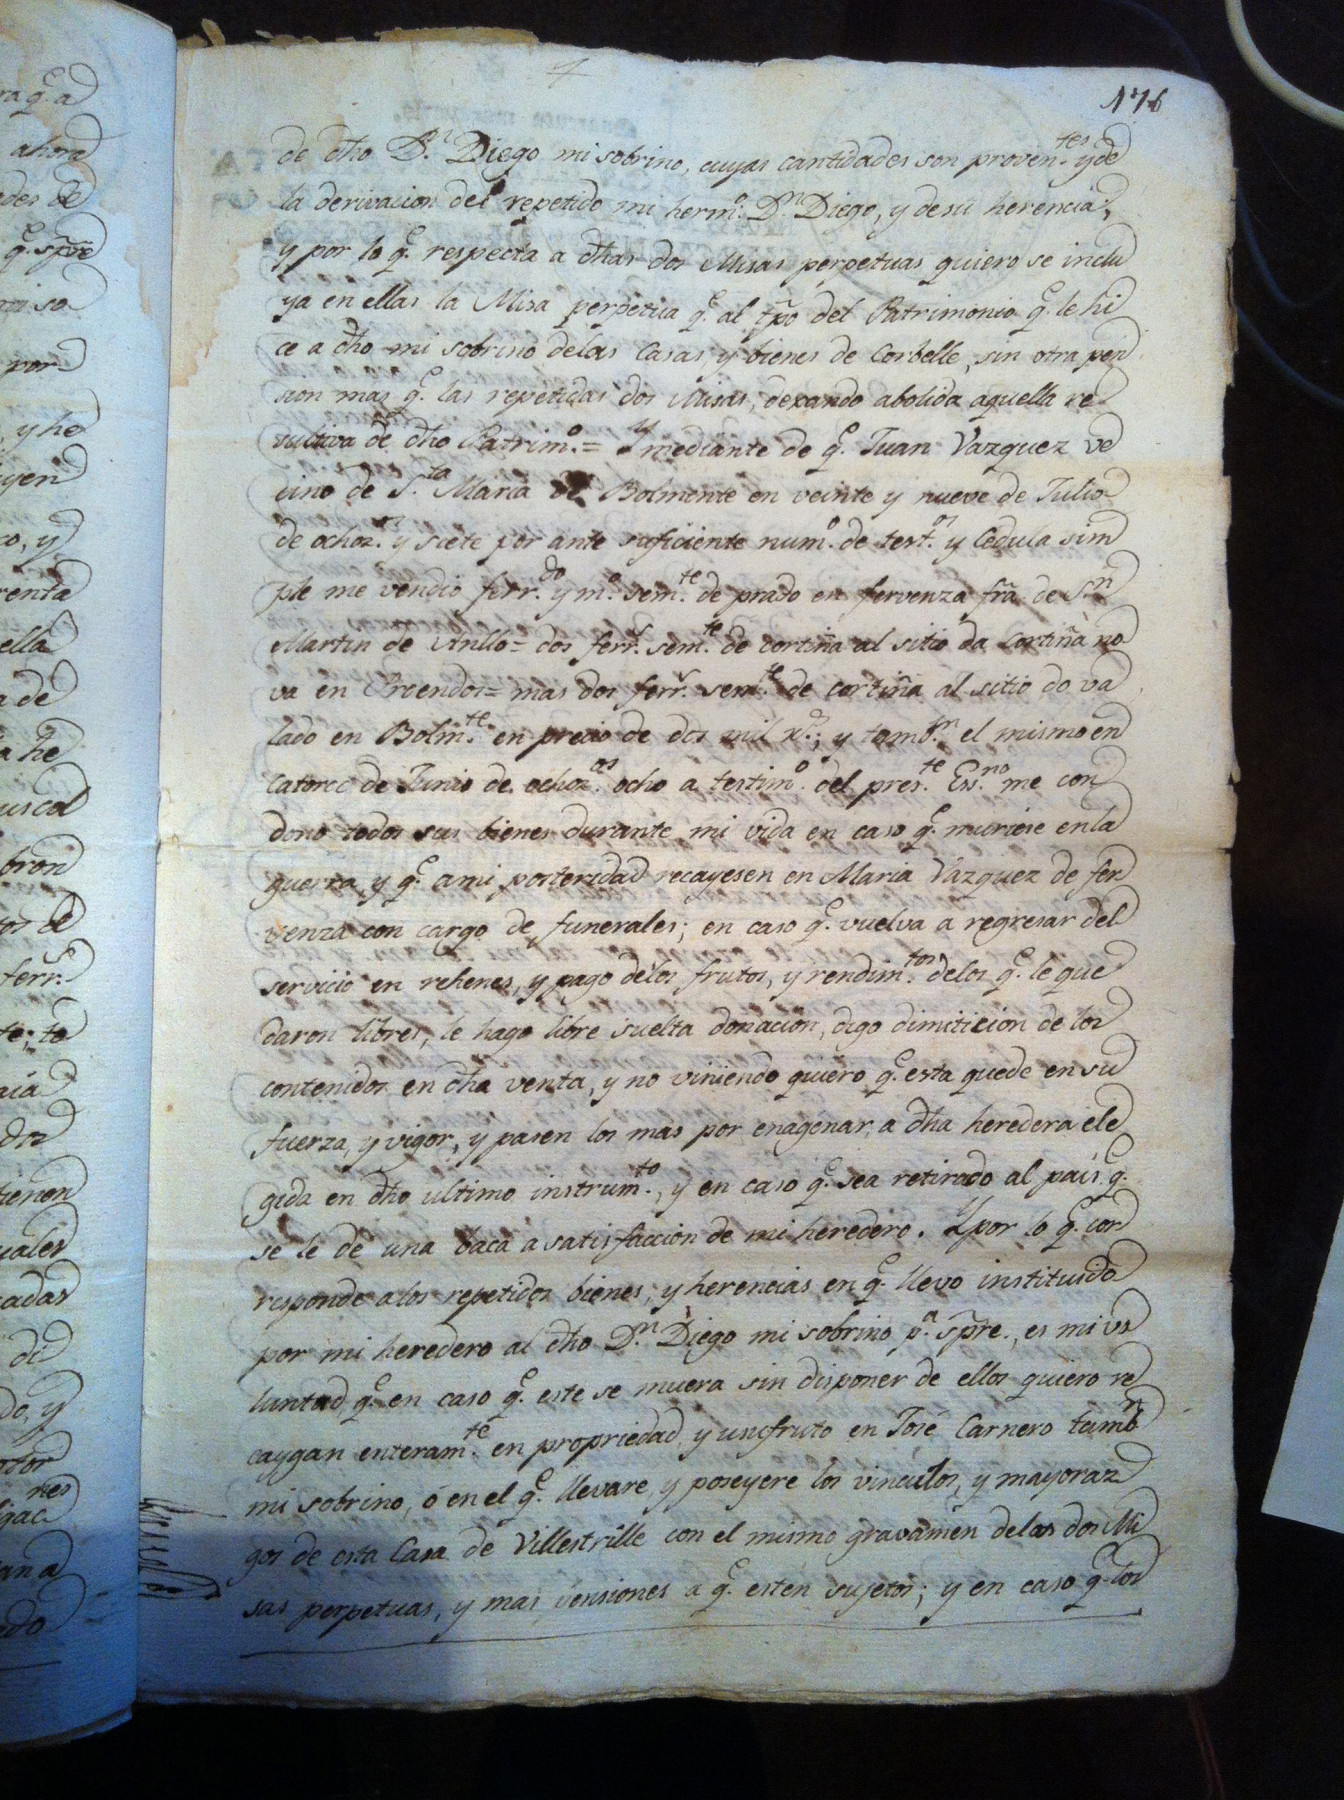 176
de dho D.n Diego mi sobrino, cuyas cantidades son proven.tes y de
la derivacion del repetido mi herm.o D.n Diego, y de su herencia,
y por lo q.e respecta a dhas dos Misas perpetuas quiero se inclu
ya en ellas la Misa perpetua q.e al tpo del Patrimonio q.e le hi
ce a dho mi sobrino delas Casas y bienes de Corbelle, sin otra pen
sion mas q.e las repetidas dos Misas, dexando abolida aquella re
sultiva de dho Patrim.o = Y mediante de q.e Juan Vazquez ve
cino de S.ta Maria de Bolmente en veinte y nueve de Julio
de ochoz.os y siete por ante suficiente num.o de test.os y Cedula sim
ple me vendio ferr.do y m.o sem.te de prado en fervenza fra. de S.n
Martin de Anllo = dos ferr.s sem.te de cortiña al sitio da Cortiña no
va en = mas dos ferr.s sem.te de cortiña al sitio do va
lado en Bolm.te en precio de dos mil r.s; y tamb.n el mismo en
catorce de Junio de ochoz.os ocho a testim.o del pres.te Ess.no me con
dono todos sus bienes durante mi vida en caso q.e muriese en la
guerra, y q.e ami posteridad recayesen en Maria Vazquez de fer
venza con cargo de funerales; en caso q.e vuelva a regresar del
servicio en rehenes, y pago delos frutos, y rendim.tos delos q.e le que
daron libres, le hago libre suelta donacion, digo dimiticion de los
contenidos en dha venta, y no viniendo quiero q.e esta quede en su
fuerza, y vigor, y pasen los mas por enagenar a dha heredera ele
gida en dho ultimo instrum.to, y en caso q.e sea retirado al pais q.e
se le de una baca a satisfaccion de mi heredero. Y por lo q.e cor
responde a los repetidos bienes, y herencias en q.e llevo instituido
por mi heredero al dho D.n Diego mi sobrino p.a spre., es mi vo
luntad q.e en caso q.e este se muera sin disponer de ellos quiero re
caygan enteram.te en propriedad, y usufruto en José Carnero tamb.n
mi sobrino, ó en el q.e llevare, y poseyere los vinculos, y mayoraz
gos de esta Casa de Villestrille con el mismo gravamen delas dos Mi
sas perpetuas, y mas pensiones a q.e esten sujetos; y en caso q.e los